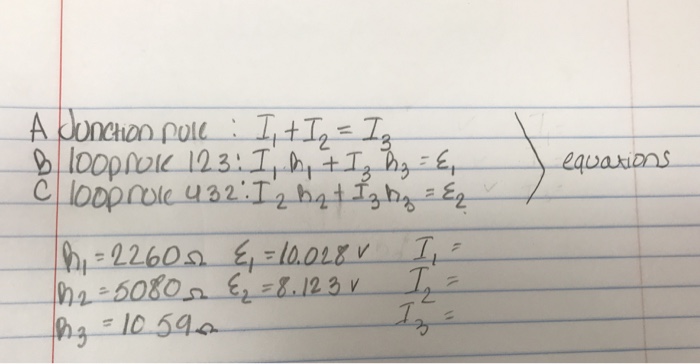 A Junction rule : I₁ + I₂ = I₃
B looprule 123: I₁ R₁ + I₃ R₃ = ε₁
C looprule 432: I₂ R₂ + I₃ R₃ = ε₂
equations
R₁ = 2260 Ω ε₁ = 10.028 V I₁ =
R₂ = 5080 Ω ε₂ = 8.123 V I₂ =
R₃ = 1059 Ω I₃ =